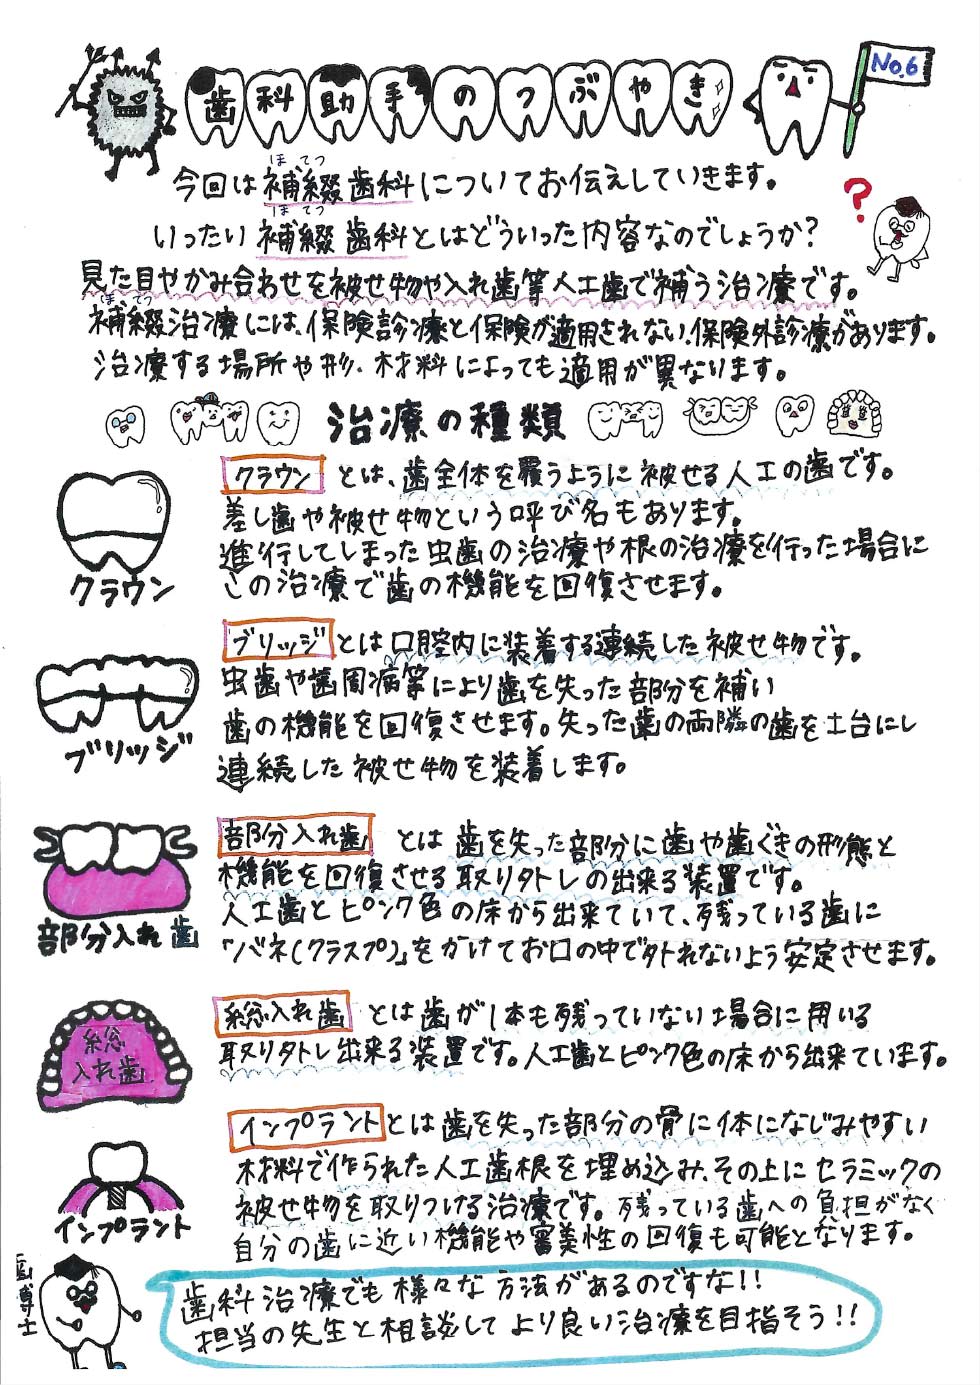 歯科助手のつぶやき
No.6
今回は補綴歯科についてお伝えしていきます。
ほ てつ
いったい補綴歯科とはどういった内容なのでしょうか?
ほ てつ
?
見た目やかみ合わせを被せ物や入れ歯等人工歯で補う治療です。
ほ てつ
補綴治療には、保険診療と保険が適用されない、保険外診療があります。
治療する場所や形、材料によっても適用が異なります。
治療の種類
クラウン
クラウンとは、歯全体を覆うように被せる人工の歯です。
差し歯や被せ物という呼び名もあります。
進行してしまった虫歯の治療や根の治療を行った場合に
この治療で歯の機能を回復させます。
ブリッジ
ブリッジとは口腔内に装着する連続した被せ物です。
虫歯や歯周病等により歯を失った部分を補い
歯の機能を回復させます。失った歯の両隣の歯を土台にし
連続した被せ物を装着します。
部分入れ歯
部分入れ歯とは歯を失った部分に歯や歯ぐきの形態と
機能を回復させる取り外しの出来る装置です。
人工歯とピンク色の床から出来ていて、残っている歯に
「バネ(クラスプ)」をかけてお口の中で外れないよう安定させます。
総入れ歯
総入れ歯とは歯が1本も残っていない場合に用いる
取り外し出来る装置です。人工歯とピンク色の床から出来ています。
インプラント
インプラントとは歯を失った部分の骨に体になじみやすい
材料で作られた人工歯根を埋め込み、その上にセラミックの
被せ物を取りつける治療です。残っている歯への負担がなく
自分の歯に近い機能や審美性の回復も可能となります。
歯博士
歯科治療でも様々な方法があるのですな!!
担当の先生と相談してより良い治療を目指そう!!